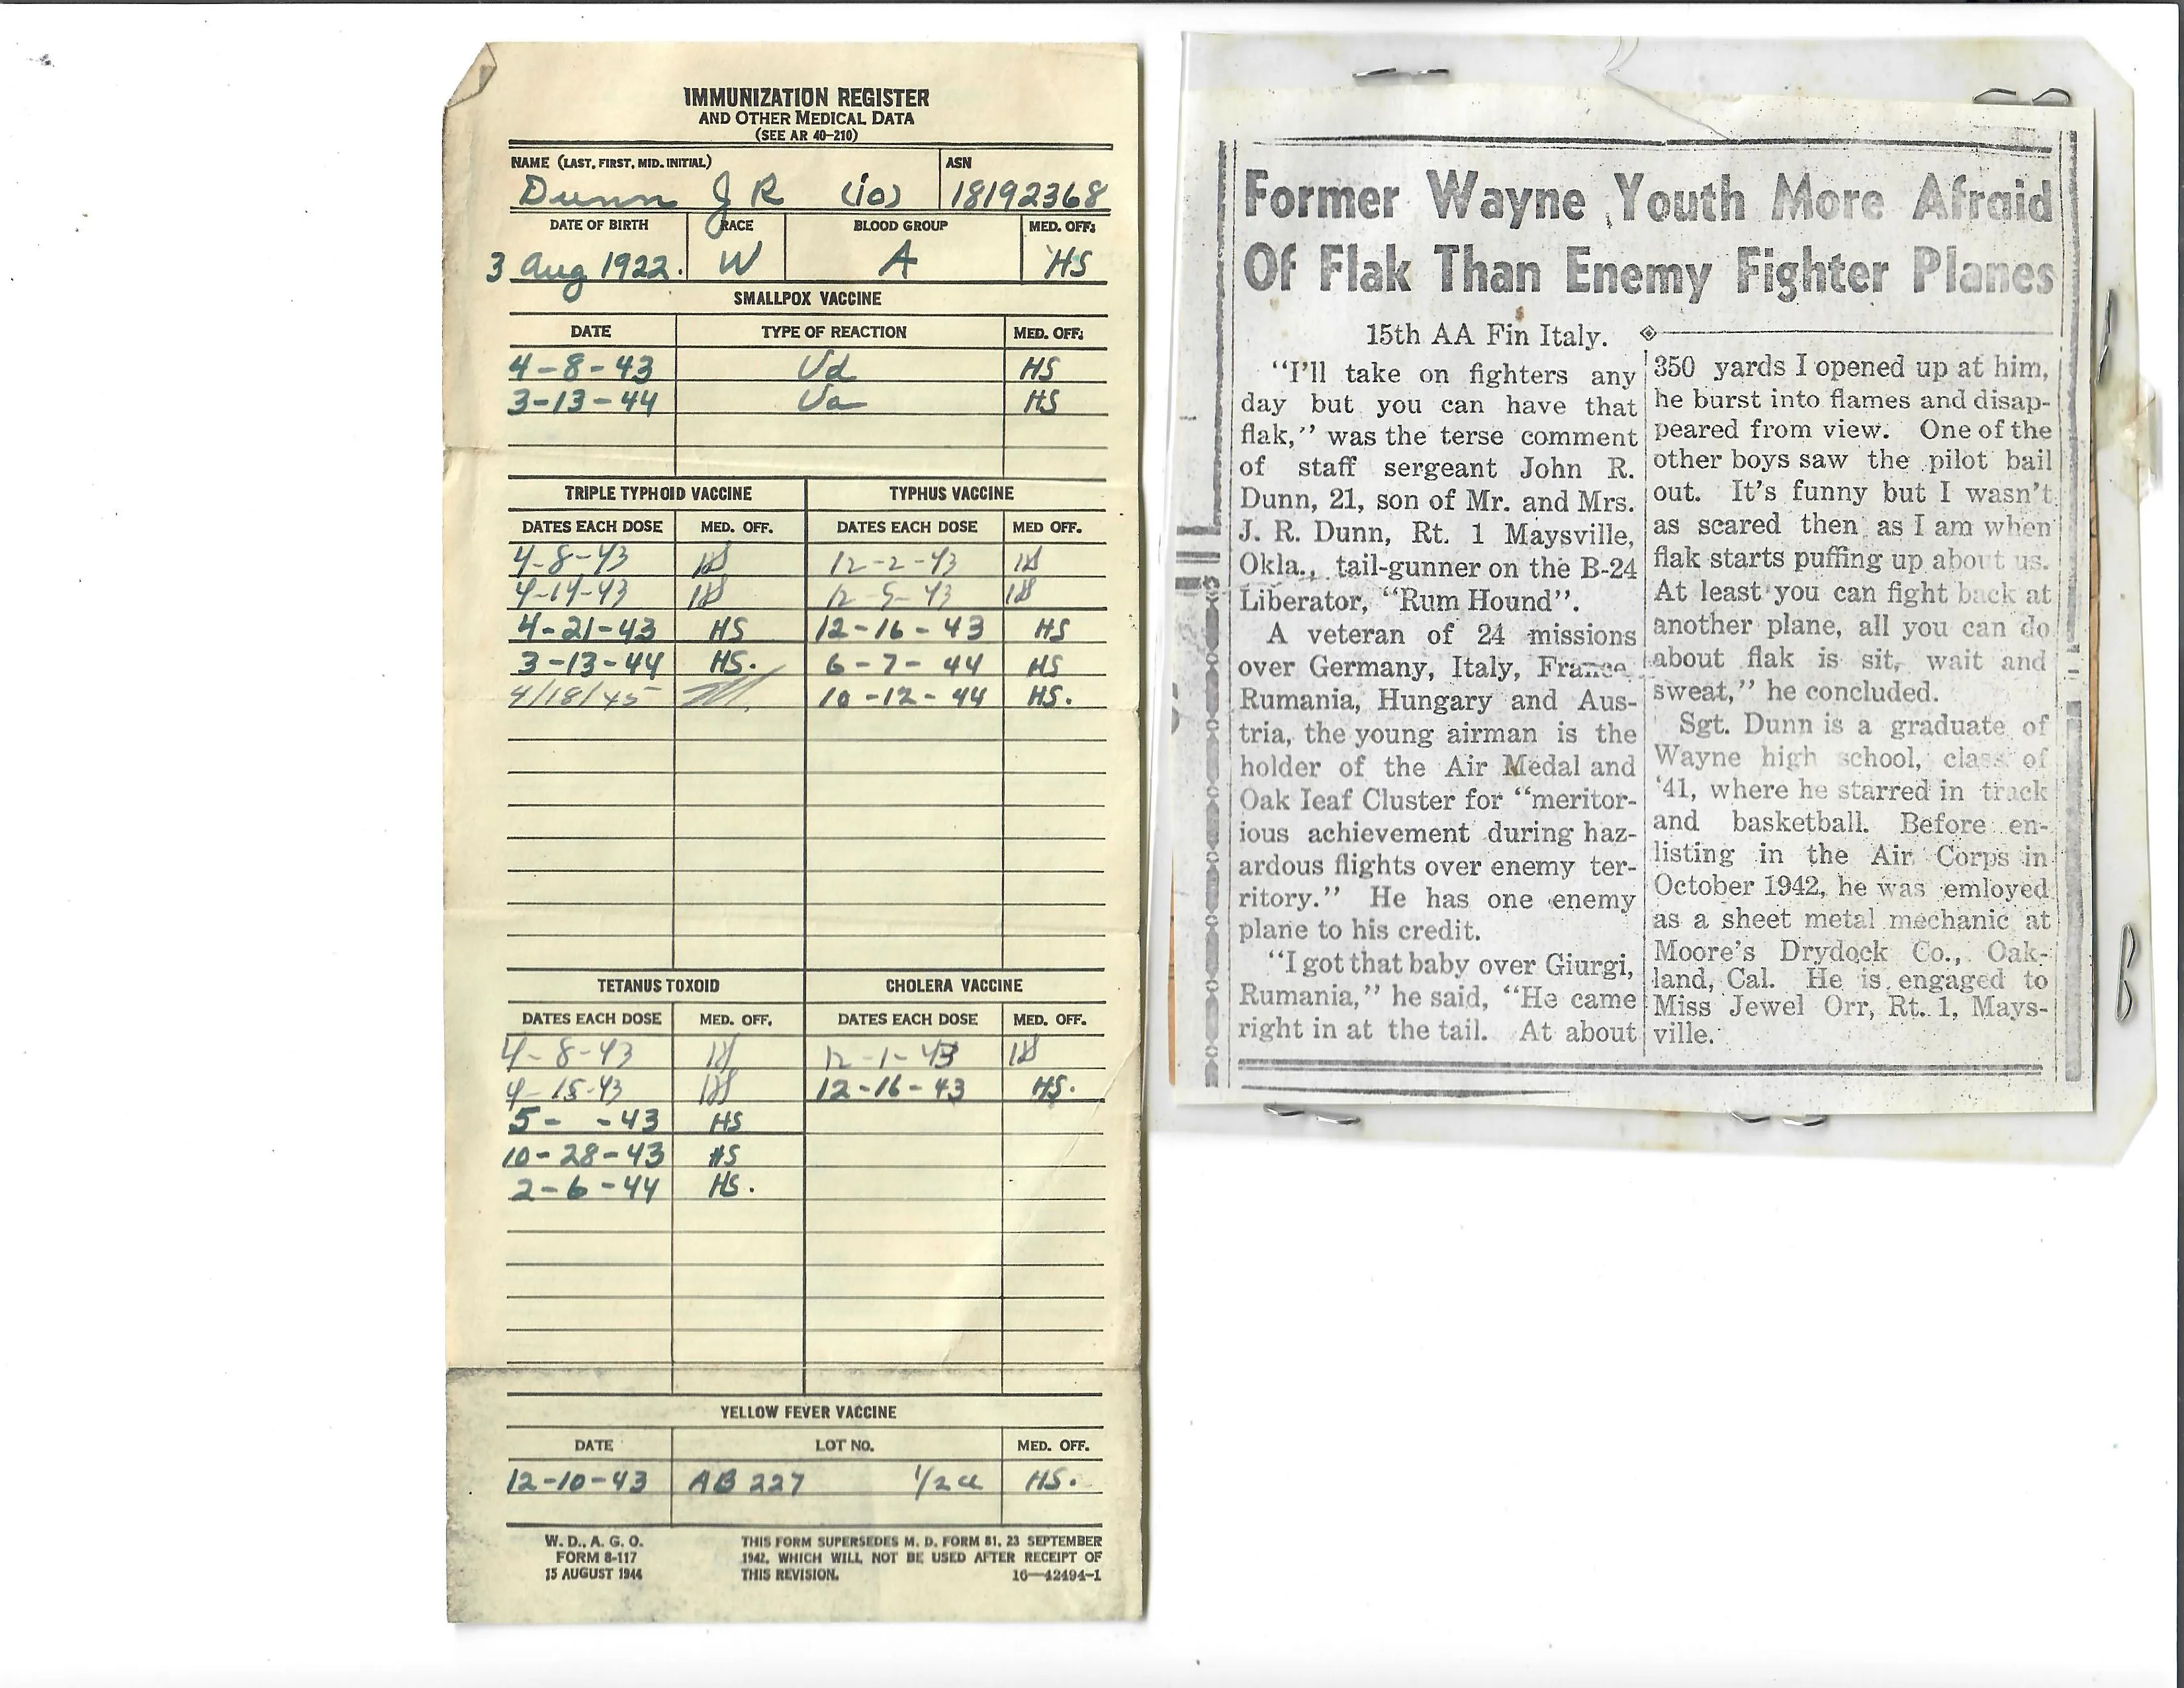 IMMUNIZATION REGISTER
AND OTHER MEDICAL DATA
(SEE AR 40-210)
NAME (LAST, FIRST, MID. INITIAL) ASN
Dunn J R (io) 18192368
DATE OF BIRTH RACE BLOOD GROUP MED. OFF.
3 Aug 1922. W A HS
SMALLPOX VACCINE
DATE TYPE OF REACTION MED. OFF.
4-8-43 Vd HS
3-13-44 Va HS
TRIPLE TYPHOID VACCINE TYPHUS VACCINE
DATES EACH DOSE MED. OFF. DATES EACH DOSE MED OFF.
4-8-43 HS 12-2-43 HS
4-14-43 HS 12-5-43 HS
4-21-43 HS 12-16-43 HS
3-13-44 HS. 6-7-44 HS
4/18/45 10-12-44 HS.
TETANUS TOXOID CHOLERA VACCINE
DATES EACH DOSE MED. OFF. DATES EACH DOSE MED. OFF.
4-8-43 HS 12-1-43 HS
4-15-43 HS 12-16-43 HS.
5- -43 HS
10-28-43 HS
2-6-44 HS.
YELLOW FEVER VACCINE
DATE LOT NO. MED. OFF.
12-10-43 AB 227 1/2 cc HS.
W. D., A. G. O.
FORM 8-117
15 AUGUST 1944
THIS FORM SUPERSEDES M. D. FORM 81, 23 SEPTEMBER
1942, WHICH WILL NOT BE USED AFTER RECEIPT OF
THIS REVISION. 16—42494-1
Former Wayne Youth More Afraid
Of Flak Than Enemy Fighter Planes
15th AA Fin Italy.
"I'll take on fighters any
day but you can have that
flak," was the terse comment
of staff sergeant John R.
Dunn, 21, son of Mr. and Mrs.
J. R. Dunn, Rt. 1 Maysville,
Okla., tail-gunner on the B-24
Liberator, "Rum Hound".
A veteran of 24 missions
over Germany, Italy, France,
Rumania, Hungary and Aus-
tria, the young airman is the
holder of the Air Medal and
Oak leaf Cluster for "meritor-
ious achievement during haz-
ardous flights over enemy ter-
ritory." He has one enemy
plane to his credit.
"I got that baby over Giurgi,
Rumania," he said, "He came
right in at the tail. At about
350 yards I opened up at him,
he burst into flames and disap-
peared from view. One of the
other boys saw the pilot bail
out. It's funny but I wasn't
as scared then as I am when
flak starts puffing up about us.
At least you can fight back at
another plane, all you can do
about flak is sit, wait and
sweat," he concluded.
Sgt. Dunn is a graduate of
Wayne high school, class of
'41, where he starred in track
and basketball. Before en-
listing in the Air Corps in
October 1942, he was emloyed
as a sheet metal mechanic at
Moore's Drydock Co., Oak-
land, Cal. He is engaged to
Miss Jewel Orr, Rt. 1, Mays-
ville.